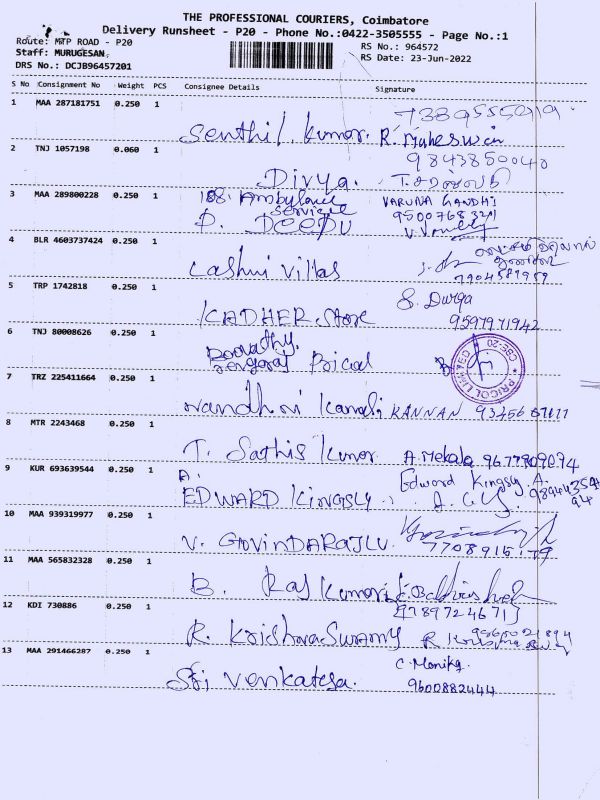 THE PROFESSIONAL COURIERS, Coimbatore
Delivery Runsheet - P20 - Phone No.:0422-3505555 - Page No.:1
Route: MTP ROAD - P20
RS No.: 964572
Staff: MURUGESAN
RS Date: 23-Jun-2022
DRS No.: DCJB96457201
S No Consignment No Weight PCS Consignee Details Signature
1 MAA 287181751 0.250 1
Senthil kumar. R. Maheswari
2 TNJ 1057198 0.060 1
9843850040
Divya.
3 MAA 289800228 0.250 1
108. Ambulance service
VARUNA GANDHI
D. DEEPU
9500768321
4 BLR 4603737424 0.250 1
Lashmi Villas
7904589959
5 TRP 1742818 0.250 1
S. Durga
KADHER. Store
9597971942
6 TNJ 80008626 0.250 1
PRICOL LIMITED CBE-20
Pricol
7 TRZ 225411664 0.250 1
KANNAN
8 MTR 2243468 0.250 1
T. Sathis kumar A. Mekala
9 KUR 693639544 0.250 1
Edward Kingsly. A.
A. EDWARD KINGSLY.
10 MAA 939319977 0.250 1
V. GOVINDARAJLU.
11 MAA 565832328 0.250 1
B. Raj kumar
7897246715
12 KDI 730886 0.250 1
R. KrishnaSwamy
13 MAA 291466287 0.250 1
C. Monika
Sri Venkatesa.
9600882444